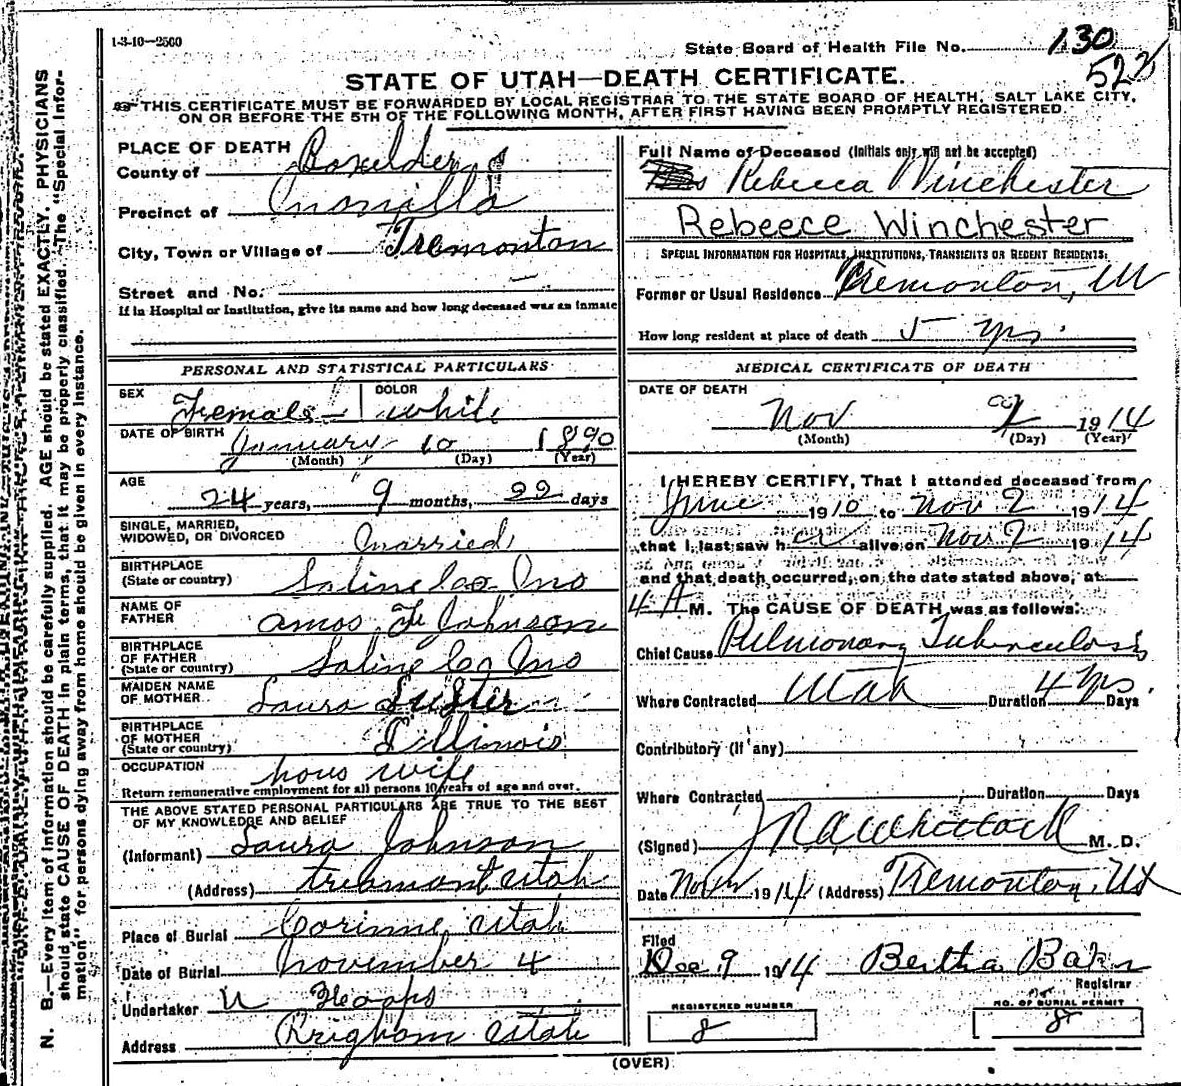 1-3-10—2500
State Board of Health File No. 130
522
STATE OF UTAH—DEATH CERTIFICATE.
THIS CERTIFICATE MUST BE FORWARDED BY LOCAL REGISTRAR TO THE STATE BOARD OF HEALTH, SALT LAKE CITY,
ON OR BEFORE THE 5TH OF THE FOLLOWING MONTH, AFTER FIRST HAVING BEEN PROMPTLY REGISTERED
N. B.—Every item of information should be carefully supplied. AGE should be stated EXACTLY. PHYSICIANS
should state CAUSE OF DEATH in plain terms, that it may be properly classified. The "Special Infor-
mation" for persons dying away from home should be given in every instance.
PLACE OF DEATH
County of Boxelder
Precinct of
City, Town or Village of Tremonton
Street and No. —
If in Hospital or Institution, give its name and how long deceased was an inmate
PERSONAL AND STATISTICAL PARTICULARS
SEX Female COLOR white
DATE OF BIRTH January 10 1890
(Month) (Day) (Year)
AGE
24 years, 9 months, 22 days
SINGLE, MARRIED,
WIDOWED, OR DIVORCED Married
BIRTHPLACE
(State or country) Saline Co Mo
NAME OF
FATHER Amos F Johnson
BIRTHPLACE
OF FATHER
(State or country) Saline Co Mo
MAIDEN NAME
OF MOTHER Laura
BIRTHPLACE
OF MOTHER
(State or country) Illinois
OCCUPATION hous wife
Return remunerative employment for all persons 10 years of age and over.
THE ABOVE STATED PERSONAL PARTICULARS ARE TRUE TO THE BEST
OF MY KNOWLEDGE AND BELIEF
(Informant) Laura Johnson
(Address) Utah
Place of Burial Corinne, Utah
Date of Burial November 4
Undertaker
Address Brigham Utah
Full Name of Deceased (Initials only will not be accepted)
Rebecca Winchester
Rebeece Winchester
SPECIAL INFORMATION FOR HOSPITALS, INSTITUTIONS, TRANSIENTS OR RECENT RESIDENTS:
Former or Usual Residence Tremonton, Ut
How long resident at place of death 5 yrs.
MEDICAL CERTIFICATE OF DEATH
DATE OF DEATH
Nov 2 1914
(Month) (Day) (Year)
I HEREBY CERTIFY, That I attended deceased from
June 1910 to Nov 2 1914
that I last saw her alive on Nov 2 1914
and that death occurred, on the date stated above, at
4 A M. The CAUSE OF DEATH was as follows:
Chief Cause Pulmonary Tuberculosis
Where Contracted Utah Duration 4 yrs. Days
Contributory (If any)
Where Contracted Duration Days
(Signed) M. D.
Date 1914 (Address) Tremonton, Ut
Filed
Dec 9 1914 Bertha Baker
Registrar
REGISTERED NUMBER
8
NO. OF BURIAL PERMIT
8
(OVER)